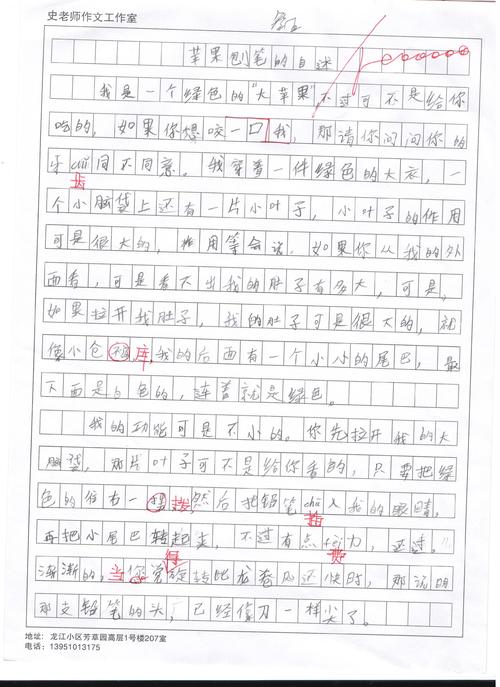 史老师作文工作室
苹果刨笔的自述
我是一个绿色的“大苹果”,不过可不是给你
吃的,如果你想咬一口我,那请你问问你的
牙chi同不同意。我穿着一件绿色的大衣,一
齿
个小脑袋上还有一片小叶子,小叶子的作用
可是很大的,作用等会说。如果你从我的外
面看,可是看不出我的肚子有多大,可是,
如果拉开我肚子,我的肚子可是很大的,就
像小仓库,我的后面有一个小小的尾巴,最
下面是白色的,连着就是绿色。
我的功能可是不小的。你先拉开我的大
脑袋,那片叶子可不是给你看的,只要把绿
色的往右一拨然后把铅笔chā入我的眼睛,
插
再把小尾巴转起来,不过有点fèi力,还过,
得 费
渐渐的,当你觉旋转比龙卷风还快时,那说明
那支铅笔的头,已经像刀一样尖了。
地址: 龙江小区芳草园高层1号楼207室
电话: 13951013175